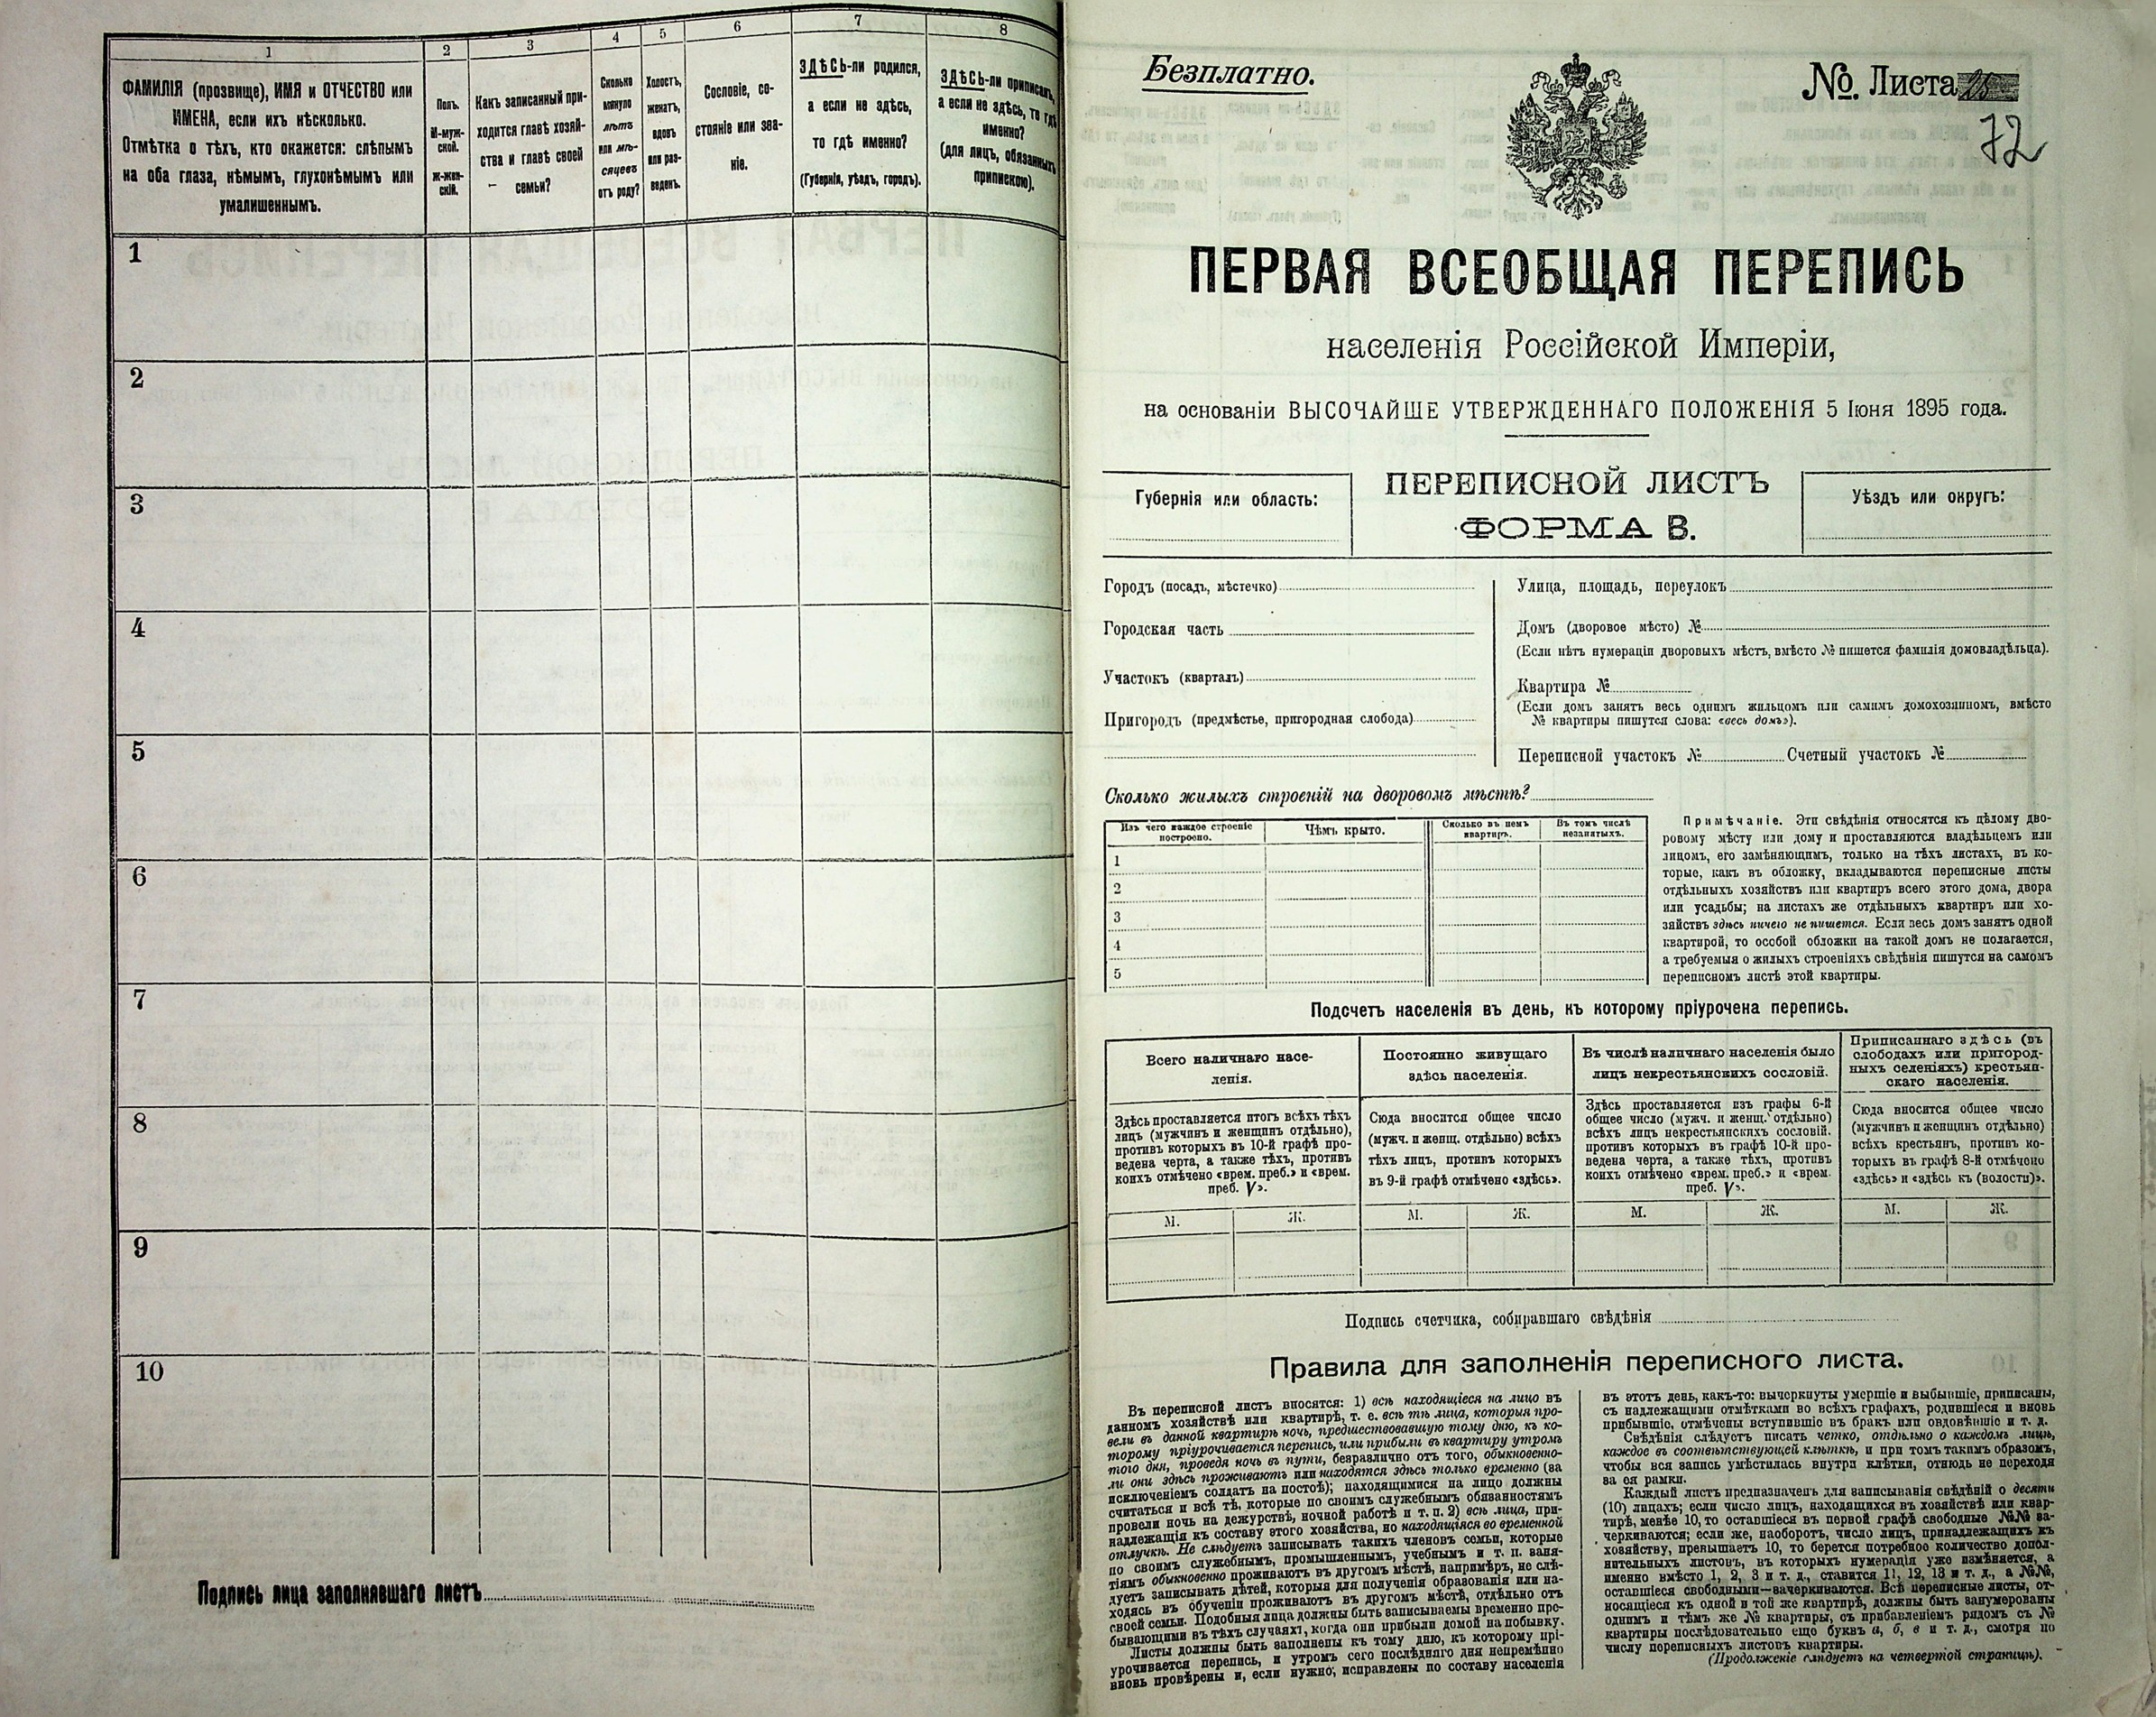 1
2
3
4
5
6
7
8
ФАМИЛІЯ (прозвище), ИМЯ и ОТЧЕСТВО или
ИМЕНА, если ихъ нѣсколько.
Отмѣтка о тѣхъ, кто окажется: слѣпымъ
на оба глаза, нѣмымъ, глухонѣмымъ или
умалишеннымъ.
Полъ.
М-муж-
ской.
ж-жен-
скій.
Какъ записанный при-
ходится главѣ хозяй-
ства и главѣ своей
семьи?
Сколько
минуло
лѣтъ
или мѣ-
сяцевъ
отъ роду?
Холостъ,
женатъ,
вдовъ
или раз-
веденъ.
Сословіе, со-
стояніе или зва-
ніе.
ЗДѢСЬ-ли родился,
а если не здѣсь,
то гдѣ именно?
(Губернія, уѣздъ, городъ).
ЗДѢСЬ-ли приписанъ,
а если не здѣсь, то гдѣ
именно?
(для лицъ, обязанныхъ
припискою).
1
2
3
4
5
6
7
8
9
10
Подпись лица заполнявшаго листъ
Безплатно.
№. Листа 25
72
ПЕРВАЯ ВСЕОБЩАЯ ПЕРЕПИСЬ
населенія Россійской Имперіи,
на основаніи ВЫСОЧАЙШЕ УТВЕРЖДЕННАГО ПОЛОЖЕНІЯ 5 Іюня 1895 года.
Губернія или область:
ПЕРЕПИСНОЙ ЛИСТЪ
ФОРМА В.
Уѣздъ или округъ:
Городъ (посадъ, мѣстечко)
Городская часть
Участокъ (кварталъ)
Пригородъ (предмѣстье, пригородная слобода)
Улица, площадь, переулокъ
Домъ (дворовое мѣсто) №
(Если нѣтъ нумераціи дворовыхъ мѣстъ, вмѣсто № пишется фамилія домовладѣльца).
Квартира №
(Если домъ занятъ весь однимъ жильцомъ или самимъ домохозяиномъ, вмѣсто
№ квартиры пишутся слова: «весь домъ»).
Переписной участокъ № Счетный участокъ №
Сколько жилыхъ строеній на дворовомъ мѣстѣ?
Изъ чего каждое строеніе
построено.
Чѣмъ крыто.
Сколько въ немъ
квартиръ.
Въ томъ числѣ
незанятыхъ.
1
2
3
4
5
Примѣчаніе. Эти свѣдѣнія относятся къ цѣлому дво-
ровому мѣсту или дому и проставляются владѣльцемъ или
лицомъ, его замѣняющимъ, только на тѣхъ листахъ, въ ко-
торые, какъ въ обложку, вкладываются переписные листы
отдѣльныхъ хозяйствъ или квартиръ всего этого дома, двора
или усадьбы; на листахъ же отдѣльныхъ квартиръ или хо-
зяйствъ здѣсь ничего не пишется. Если весь домъ занятъ одной
квартирой, то особой обложки на такой домъ не полагается,
а требуемыя о жилыхъ строеніяхъ свѣдѣнія пишутся на самомъ
переписномъ листѣ этой квартиры.
Подсчетъ населенія въ день, къ которому пріурочена перепись.
Всего наличнаго насе-
ленія.
Здѣсь проставляется итогъ всѣхъ тѣхъ
лицъ (мужчинъ и женщинъ отдѣльно),
противъ которыхъ въ 10-й графѣ про-
ведена черта, а также тѣхъ, противъ
коихъ отмѣчено «врем. преб.» и «врем.
преб. V».
Постоянно живущаго
здѣсь населенія.
Сюда вносится общее число
(мужч. и женщ. отдѣльно) всѣхъ
тѣхъ лицъ, противъ которыхъ
въ 9-й графѣ отмѣчено «здѣсь».
Въ числѣ наличнаго населенія было
лицъ некрестьянскихъ сословій.
Здѣсь проставляется изъ графы 6-й
общее число (мужч. и женщ. отдѣльно)
всѣхъ лицъ некрестьянскихъ сословій.
противъ которыхъ въ графѣ 10-й про-
ведена черта, а также тѣхъ, противъ
коихъ отмѣчено «врем. преб.» и «врем.
преб. V».
Приписаннаго здѣсь (въ
слободахъ или пригород-
ныхъ селеніяхъ) крестьян-
скаго населенія.
Сюда вносится общее число
(мужчинъ и женщинъ отдѣльно)
всѣхъ крестьянъ, противъ ко-
торыхъ въ графѣ 8-й отмѣчено
«здѣсь» и «здѣсь къ (волости)».
М. Ж. М. Ж. М. Ж. М. Ж.
Подпись счетчика, собиравшаго свѣдѣнія
Правила для заполненія переписного листа.
Въ переписной листъ вносятся: 1) всѣ находящіеся на лицо въ
данномъ хозяйствѣ или квартирѣ, т. е. всѣ тѣ лица, которыя про-
вели въ данной квартирѣ ночь, предшествовавшую тому дню, къ ко-
торому пріурочивается перепись, или прибыли въ квартиру утромъ
того дня, проведя ночь въ пути, безразлично отъ того, обыкновенно-
ли они здѣсь проживаютъ или находятся здѣсь только временно (за
исключеніемъ солдатъ на постоѣ); находящимися на лицо должны
считаться и всѣ тѣ, которые по своимъ служебнымъ обязанностямъ
провели ночь на дежурствѣ, ночной работѣ и т. п. 2) всѣ лица, при-
надлежащія къ составу этого хозяйства, но находящіяся во временной
отлучкѣ. Не слѣдуетъ записывать такихъ членовъ семьи, которые
по своимъ служебнымъ, промышленнымъ, учебнымъ и т. п. заня-
тіямъ обыкновенно проживаютъ въ другомъ мѣстѣ, напримѣръ, не слѣ-
дуетъ записывать дѣтей, которыя для полученія образованія или на-
ходясь въ обученіи проживаютъ въ другомъ мѣстѣ, отдѣльно отъ
своей семьи. Подобныя лица должны быть записываемы временно пре-
бывающими въ тѣхъ случаяхъ, когда они прибыли домой на побывку.
Листы должны быть заполнены къ тому дню, къ которому прі-
урочивается перепись, и утромъ сего послѣдняго дня непремѣнно
вновь провѣрены и, если нужно, исправлены по составу населенія
въ этотъ день, какъ-то: вычеркнуты умершіе и выбывшіе, приписаны,
съ надлежащими отмѣтками во всѣхъ графахъ, родившіеся и вновь
прибывшіе, отмѣчены вступившіе въ бракъ или овдовѣвшіе и т. д.
Свѣдѣнія слѣдуетъ писать четко, отдѣльно о каждомъ лицѣ,
каждое въ соотвѣтствующей клѣткѣ, и при томъ такимъ образомъ,
чтобы вся запись умѣстилась внутри клѣтки, отнюдь не переходя
за ея рамки.
Каждый листъ предназначенъ для записыванія свѣдѣній о десяти
(10) лицахъ; если число лицъ, находящихся въ хозяйствѣ или квар-
тирѣ, менѣе 10, то оставшіеся въ первой графѣ свободные №№ за-
черкиваются; если же, наоборотъ, число лицъ, принадлежащихъ къ
хозяйству, превышаетъ 10, то берется потребное количество допол-
нительныхъ листовъ, въ которыхъ нумерація уже измѣняется, а
именно вмѣсто 1, 2, 3 и т. д., ставится 11, 12, 13 и т. д., а №№,
оставшіеся свободными—зачеркиваются. Всѣ переписные листы, от-
носящіеся къ одной и той же квартирѣ, должны быть занумерованы
однимъ и тѣмъ же № квартиры, съ прибавленіемъ рядомъ съ №
квартиры послѣдовательно еще буквъ а, б, в и т. д., смотря по
числу переписныхъ листовъ квартиры.
(Продолженіе слѣдуетъ на четвертой страницѣ).